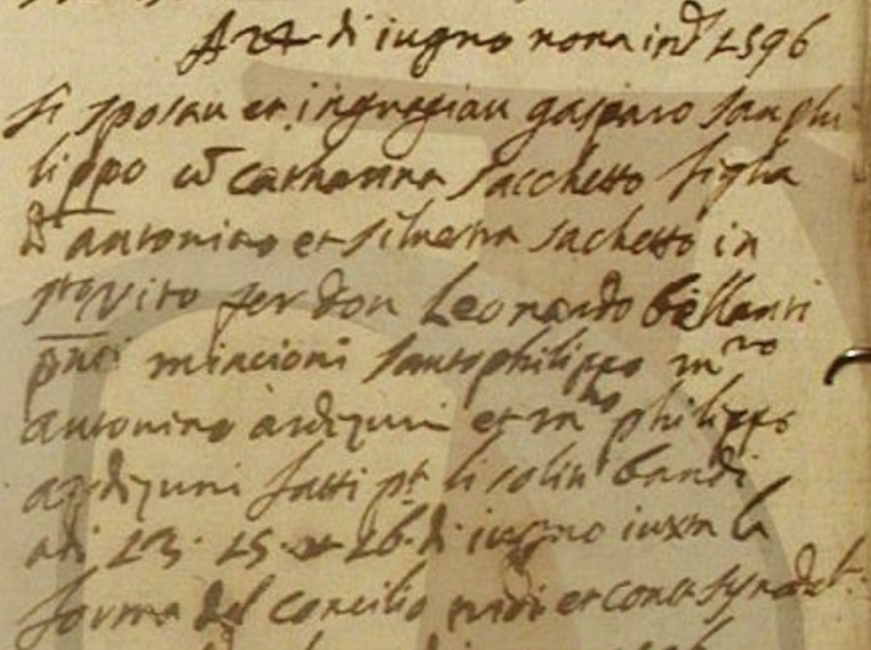 di iugno nona ind 1596
si sposau et ingregiau gasparo sanphi
lippo cũ catharina sacchetto figlia
d antonino et silvestra sachetto in
vito per don Leonardo bellanti
pñti mincioni santophilippo mro
antonino ardizuni et mro philippo
ardizuni fatti li soliti bandi
adi 23. 25. et 26. di iugno iuxta la
forma del concilio et